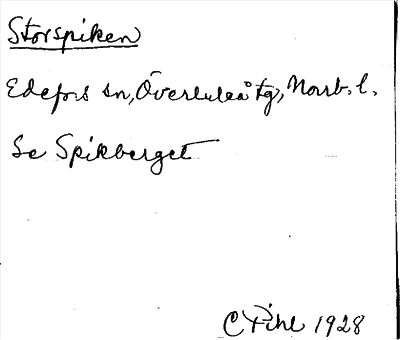 Storspiken
Edefors sn, Överluleå tg, Norrb. l.
Se Spikberget
C Pihl 1928